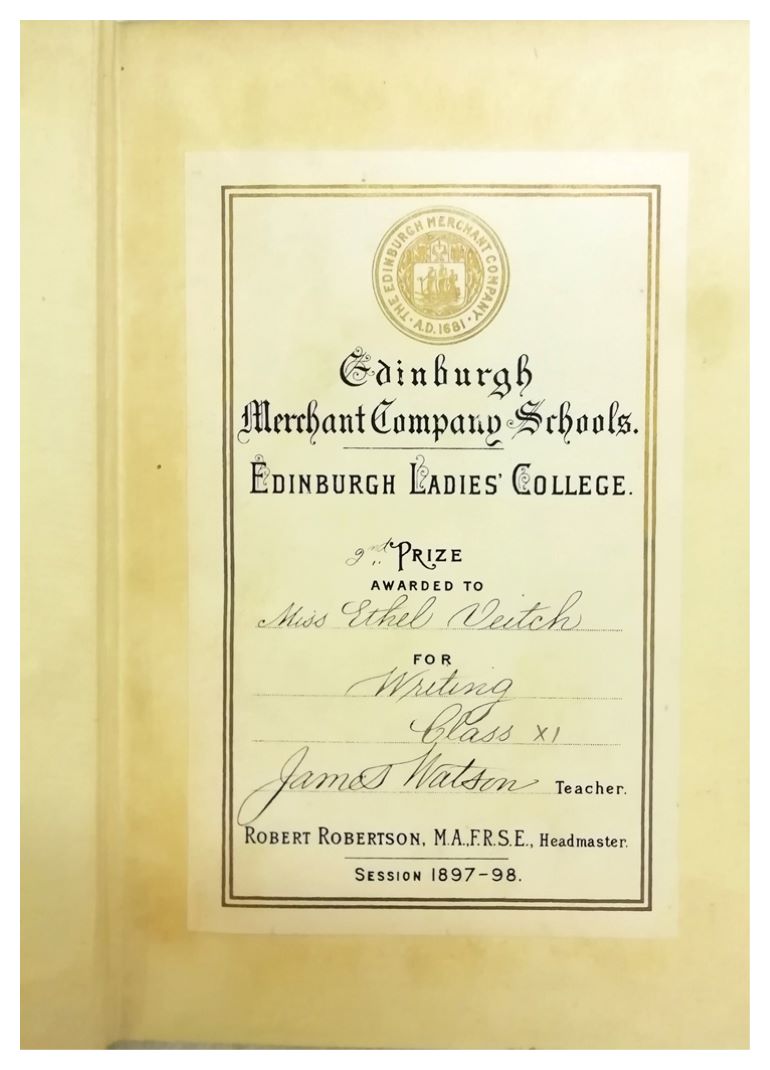 THE EDINBURGH MERCHANT COMPANY
· A.D. 1681 ·
Edinburgh
Merchant Company Schools.
EDINBURGH LADIES' COLLEGE.
2nd PRIZE
AWARDED TO
Miss Ethel Veitch
FOR
Writing
Class XI
James Watson Teacher.
ROBERT ROBERTSON, M.A.,F.R.S.E., Headmaster.
SESSION 1897-98.